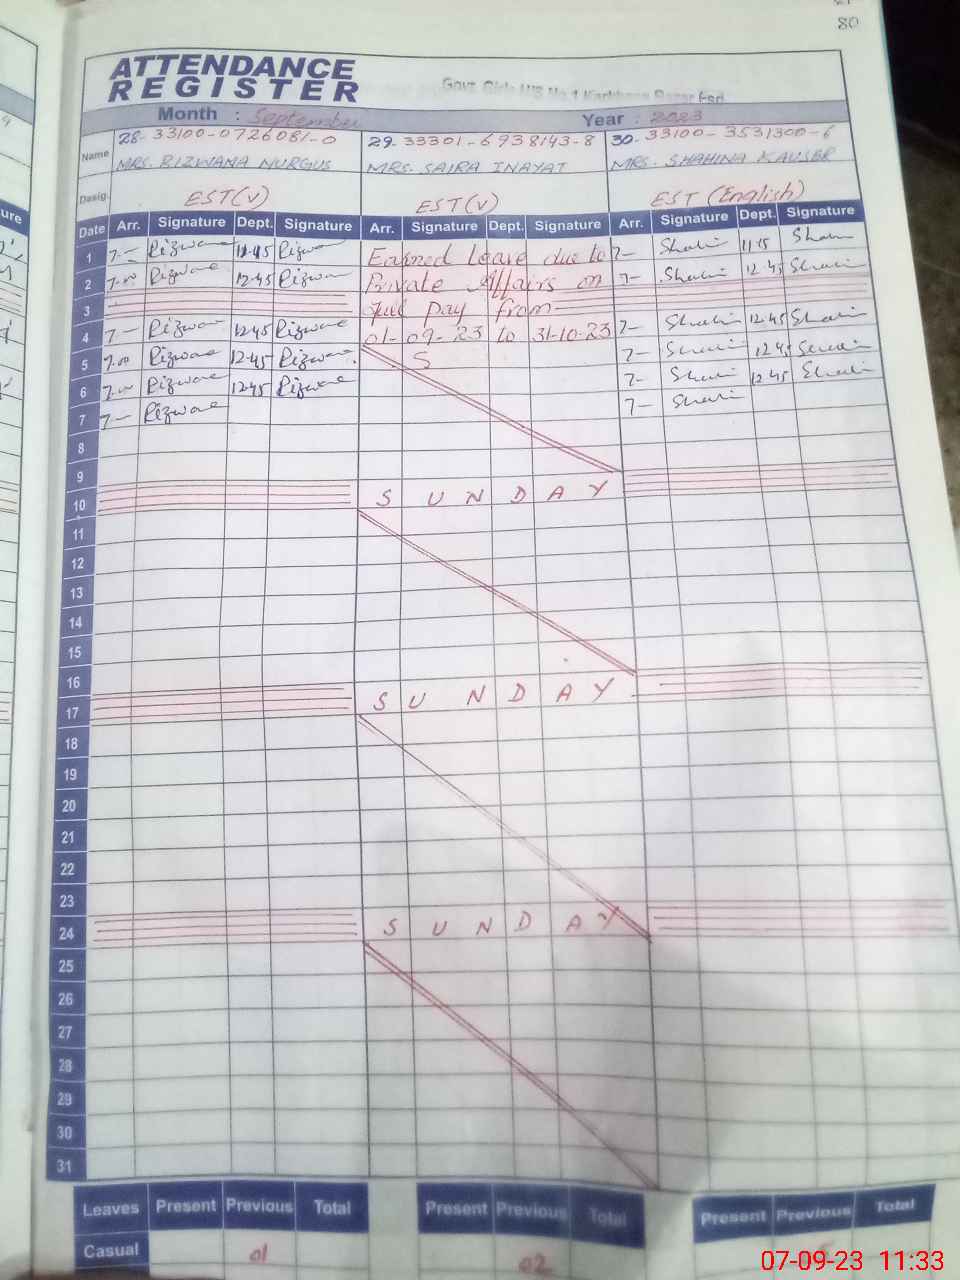 80
ATTENDANCE
REGISTER
Month : September Year : 2023
Name 28- 33100-0726081-0 29. 33301-6938143-8 30. 33100-3531300-6
MRS. RIZWANA NURGUS MRS. SAIRA INAYAT MRS. SHAHINA KAUSER
Dasig. EST(V) EST(V) EST (English)
Date Arr. Signature Dept. Signature Arr. Signature Dept. Signature Arr. Signature Dept. Signature
1 7- 12-45 Earned Leave due to 7- 11 15
2 7.00 12-45 Private Affairs on 7- 12 45
3 full pay from
4 7- 12-45 01-09-23 to 31-10-23 7- 12-45
5 7.00 12-45 S 7- 12 45
6 7.00 12-45 7- 12 45
7 7- 7-
8
9
10 SUNDAY
11
12
13
14
15
16
17 SUNDAY
18
19
20
21
22
23
24 SUNDAY
25
26
27
28
29
30
31
Leaves Present Previous Total Present Previous Total Present Previous Total
Casual 01 02
07-09-23 11:33